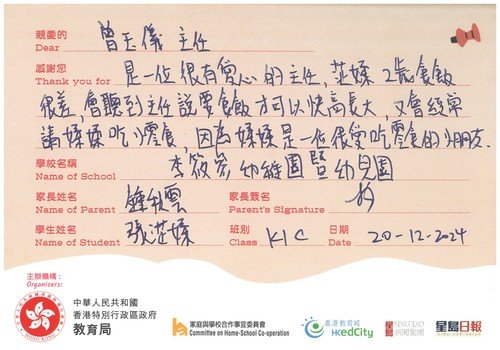 親愛的
Dear 曾玉儀 主任
感謝您
Thank you for 是一位很有愛心的主任, 芷嫀2歲食飯
很差, 會聽到主任說要食飯才可以快高長大, 又會經常
請嫀嫀吃小零食, 因為嫀嫀是一位很愛吃零食的小朋友.
學校名稱
Name of School 李筱芳幼稚園暨幼兒園
家長姓名
Name of Parent 鍾秋雲
家長簽名
Parent's Signature
學生姓名
Name of Student 張芷嫀
班別
Class K1C
日期
Date 20-12-2024
主辦機構:
Organisers:
中華人民共和國
香港特別行政區政府
教育局
家庭與學校合作事宜委員會
Committee on Home-School Co-operation
香港教育城
HKedCity
星島 SING TAO
新聞集團
星島日報